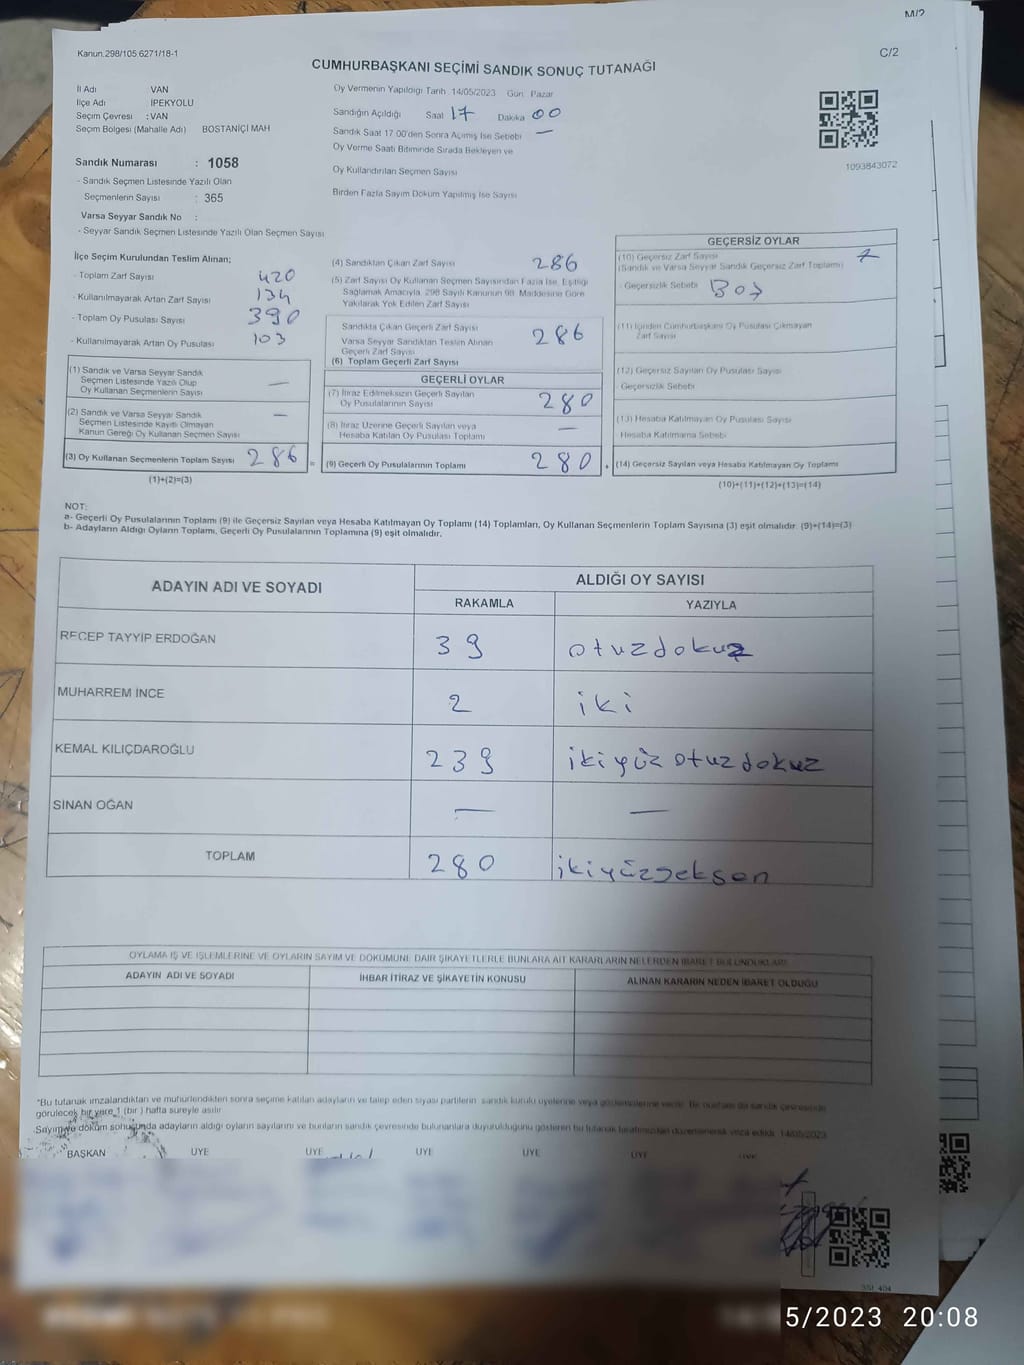 M/2
Kanun.298/105;6271/18-1
C/2
CUMHURBAŞKANI SEÇİMİ SANDIK SONUÇ TUTANAĞI
İl Adı VAN
İlçe Adı İPEKYOLU
Seçim Çevresi : VAN
Seçim Bölgesi (Mahalle Adı) BOSTANİÇİ MAH
Sandık Numarası : 1058
- Sandık Seçmen Listesinde Yazılı Olan
Seçmenlerin Sayısı : 365
Varsa Seyyar Sandık No :
- Seyyar Sandık Seçmen Listesinde Yazılı Olan Seçmen Sayısı
Oy Vermenin Yapıldığı Tarih 14/05/2023 Gün Pazar
Sandığın Açıldığı Saat 17 Dakika 00
Sandık Saat 17 00'den Sonra Açılmış İse Sebebi —
Oy Verme Saati Bitiminde Sırada Bekleyen ve
Oy Kullandırılan Seçmen Sayısı
Birden Fazla Sayım Döküm Yapılmış İse Sayısı
1093843072
İlçe Seçim Kurulundan Teslim Alınan;
- Toplam Zarf Sayısı 420
- Kullanılmayarak Artan Zarf Sayısı 134
- Toplam Oy Pusulası Sayısı 390
- Kullanılmayarak Artan Oy Pusulası 103
(1) Sandık ve Varsa Seyyar Sandık
Seçmen Listesinde Yazılı Olup
Oy Kullanan Seçmenlerin Sayısı —
(2) Sandık ve Varsa Seyyar Sandık
Seçmen Listesinde Kayıtlı Olmayan
Kanun Gereği Oy Kullanan Seçmen Sayısı —
(3) Oy Kullanan Seçmenlerin Toplam Sayısı 286
(1)+(2)=(3)
(4) Sandıktan Çıkan Zarf Sayısı 286
(5) Zarf Sayısı Oy Kullanan Seçmen Sayısından Fazla İse, Eşitliği
Sağlamak Amacıyla, 298 Sayılı Kanunun 98. Maddesine Göre
Yakılarak Yok Edilen Zarf Sayısı
Sandıkta Çıkan Geçerli Zarf Sayısı 286
Varsa Seyyar Sandıktan Teslim Alınan
Geçerli Zarf Sayısı
(6) Toplam Geçerli Zarf Sayısı
GEÇERLİ OYLAR
(7) İtiraz Edilmeksizin Geçerli Sayılan
Oy Pusulalarının Sayısı 280
(8) İtiraz Üzerine Geçerli Sayılan veya
Hesaba Katılan Oy Pusulası Toplamı —
= (9) Geçerli Oy Pusulalarının Toplamı 280 +
GEÇERSİZ OYLAR
(10) Geçersiz Zarf Sayısı
(Sandık ve Varsa Seyyar Sandık Geçersiz Zarf Toplamı)
- Geçersizlik Sebebi Boş
(11) İçinden Cumhurbaşkanı Oy Pusulası Çıkmayan
Zarf Sayısı
(12) Geçersiz Sayılan Oy Pusulası Sayısı
- Geçersizlik Sebebi
(13) Hesaba Katılmayan Oy Pusulası Sayısı
Hesaba Katılmama Sebebi
(14) Geçersiz Sayılan veya Hesaba Katılmayan Oy Toplamı
(10)+(11)+(12)+(13)=(14)
NOT:
a- Geçerli Oy Pusulalarının Toplamı (9) ile Geçersiz Sayılan veya Hesaba Katılmayan Oy Toplamı (14) Toplamları, Oy Kullanan Seçmenlerin Toplam Sayısına (3) eşit olmalıdır. (9)+(14)=(3)
b- Adayların Aldığı Oyların Toplamı, Geçerli Oy Pusulalarının Toplamına (9) eşit olmalıdır.
ADAYIN ADI VE SOYADI
ALDIĞI OY SAYISI
RAKAMLA YAZIYLA
RECEP TAYYİP ERDOĞAN 39 otuzdokuz
MUHARREM İNCE 2 iki
KEMAL KILIÇDAROĞLU 239 ikiyüz otuzdokuz
SİNAN OĞAN — —
TOPLAM 280 ikiyüzseksen
OYLAMA İŞ VE İŞLEMLERİNE VE OYLARIN SAYIM VE DÖKÜMÜNE DAİR ŞİKAYETLERLE BUNLARA AİT KARARLARIN NELERDEN İBARET BULUNDUKLARI
ADAYIN ADI VE SOYADI İHBAR İTİRAZ VE ŞİKAYETİN KONUSU ALINAN KARARIN NEDEN İBARET OLDUĞU
*Bu tutanak imzalandıktan ve mühürlendikten sonra seçime katılan adayların ve talep eden siyasi partilerin sandık kurulu üyelerine veya gözlemcilerine verilir. Bir nüshası da sandık çevresinde
görülecek bir yere 1 (bir) hafta süreyle asılır.
Sayım ve döküm sonucunda adayların aldığı oyların sayılarını ve bunların sandık çevresinde bulunanlara duyurulduğunu gösteren bu tutanak tarafımızdan düzenlenerek imza edildi. 14/05/2023
BAŞKAN ÜYE ÜYE ÜYE ÜYE ÜYE ÜYE
5/2023 20:08